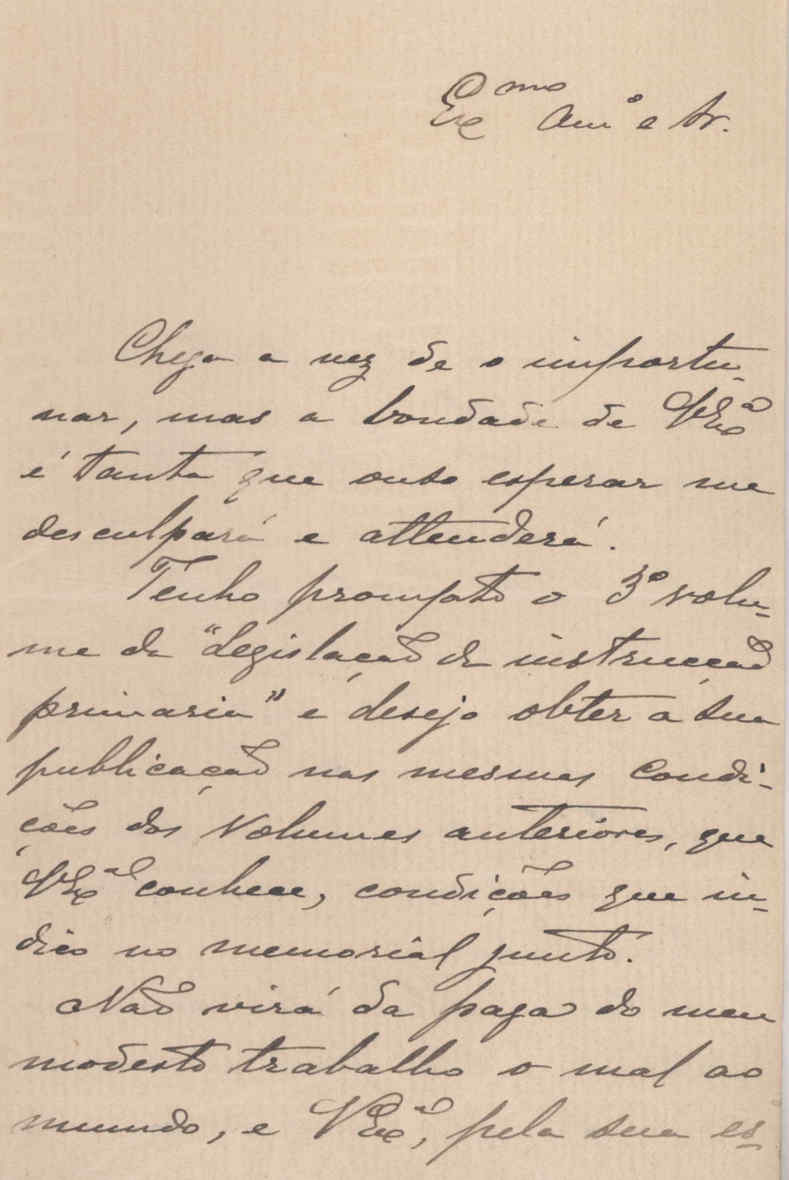 Ex^mo Am^o e Sr.
Chega a vez de o importu-
nar, mas a bondade de V Ex^a
é tanta que ouso esperar me
desculpará e attenderá.
Tenho prompto o 3º volu-
me da "Legislação da instrucção
primaria" e desejo obter a sua
publicação nas mesmas condi-
ções dos volumes anteriores, que
V Ex^a conhece, condições que in-
dico no memorial junto.
Não virá da paga do meu
modesto trabalho o mal ao
mundo, e V Ex^a, pela sua es-